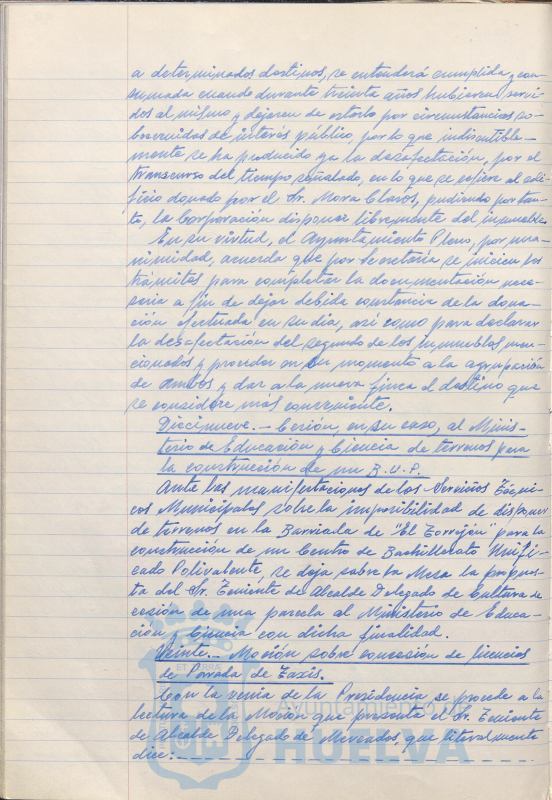 a determinados destinos, se entenderá cumplida y con-
sumada cuando durante treinta años hubieren servi-
dos al mismo y dejaren de estarlo por circunstancias so-
brevenidas de interés público, por lo que indiscutible-
mente se ha producido ya la desafectación, por el
transcurso del tiempo señalado, en lo que se refiere al edi-
ficio donado por el Sr. Mora Claros, pudiendo por tan-
to, la Corporación disponer libremente del inmueble.
En su virtud, el Ayuntamiento Pleno, por una-
nimidad, acuerda que por Secretaría se inicien los
trámites para completar la documentación nece-
saria a fin de dejar debida constancia de la dona-
ción efectuada en su día, así como para declarar
la desafectación del segundo de los inmuebles men-
cionados y proceder en su momento a la agrupación
de ambos y dar a la nueva finca el destino que
se considere más conveniente.
Diecinueve.- Cesión, en su caso, al Minis-
terio de Educación y Ciencia de terrenos para
la construcción de un B.U.P.
Ante las manifestaciones de los Servicios Técni-
cos Municipales sobre la imposibilidad de disponer
de terrenos en la Barriada de "El Torrejón" para la
construcción de un Centro de Bachillerato Unifi-
cado Polivalente, se deja sobre la Mesa la propues-
ta del Sr. Teniente de Alcalde Delegado de Cultura de
cesión de una parcela al Ministerio de Educa-
ción y Ciencia con dicha finalidad.
Veinte.- Moción sobre concesión de licencias
de Parada de Taxis.
Con la venia de la Presidencia se procede a la
lectura de la Moción que presenta el Sr. Teniente
de Alcalde Delegado de Mercados, que literalmente
dice:
ET TERRÆ
Ayuntamiento de
HUELVA